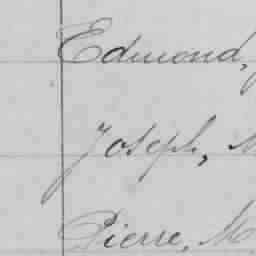 Edmond,
Joseph, M
Pierre, M